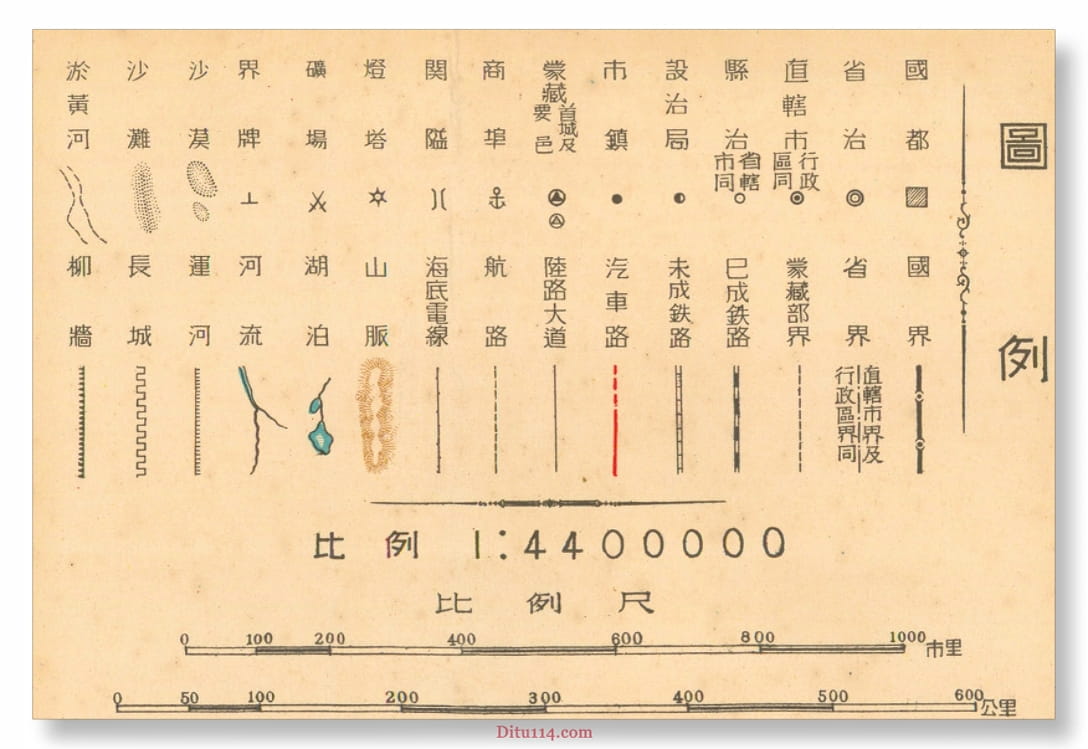 圖例
國都
省治
直轄市
行政
區同
縣治
省轄
市同
設治局
市鎮
蒙藏
首城及
要邑
商埠
関隘
燈塔
礦場
界牌
沙漠
沙灘
淤黃河
國界
省界
直轄市界及
行政區界同
蒙藏部界
已成鉄路
未成鉄路
汽車路
陸路大道
航路
海底電線
山脈
湖泊
河流
運河
長城
柳牆
比例 1:4400000
比例尺
0 100 200 400 600 800 1000 市里
0 50 100 200 300 400 500 600 公里
Ditu114.com